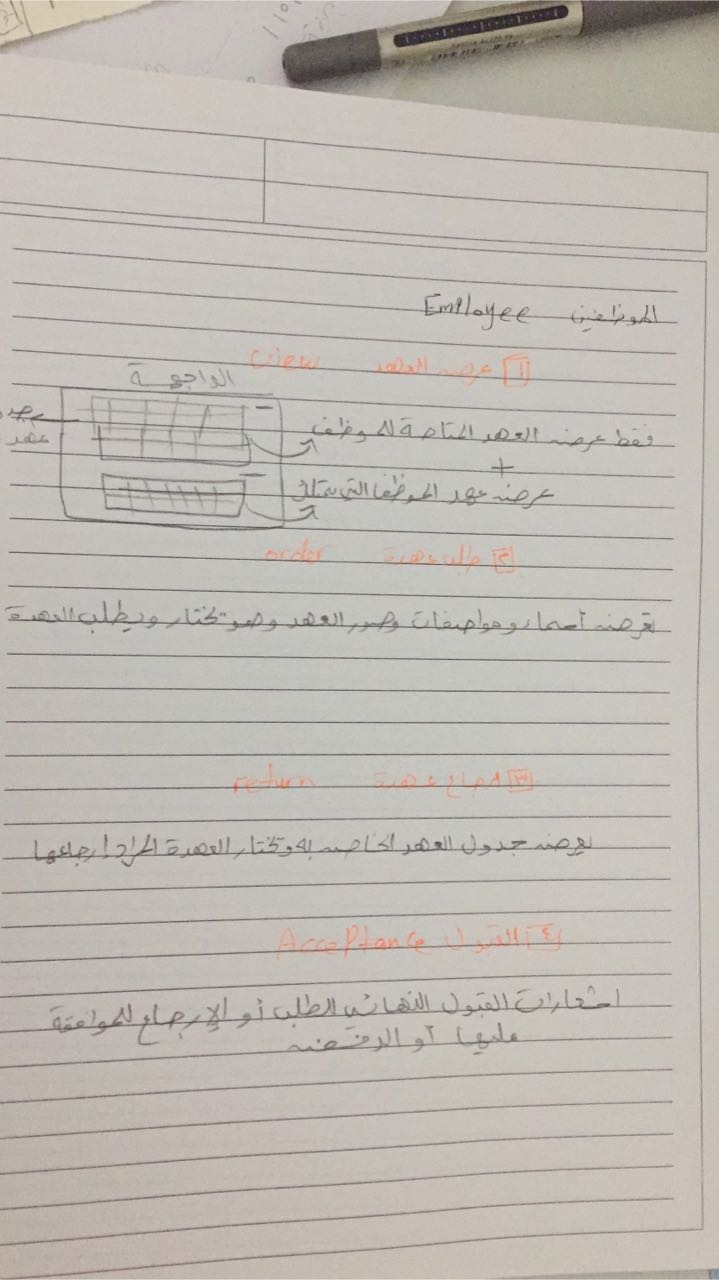 الموظفين Employee
[1] عرض العهد view
الواجهة
فقط عرض العهد المتاحة للموظف
+
عهد
عرض عهد الموظف التي يمتلك
[2] طلب عهدة order
تعرض أسماء ومواصفات وصور العهد وهو يختار ويطلب العهدة
[3] ارجاع عهدة return
يعرض جدول العهد الخاصه به وتختار العهدة المراد إرجاعها
[٤] القبول Acceptance
اشعارات القبول النهائي للطلب أو الإرجاع للموافقة
عليها أو الرفض